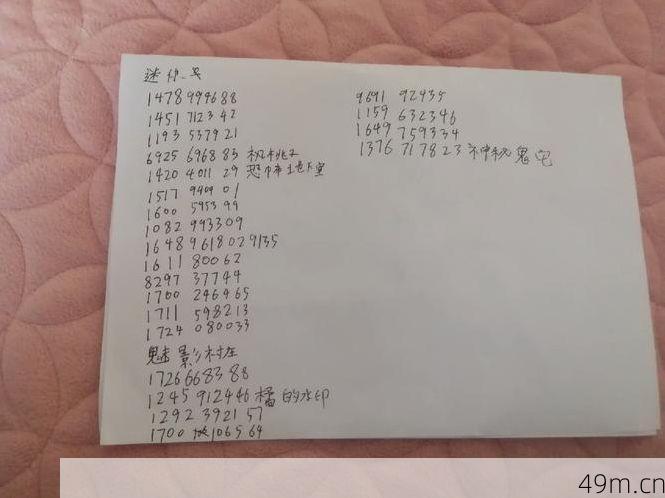 迷你号
1478 999688
1451 712342
1193 537921
6925 696883
1420 4011 29 恐怖地下室
1517 9909 01
1600 5953 99
1082 993309
1648 9618029135
1611 80062
8297 37744
1700 246465
1711 598213
1724 080033
魅影村庄
1726668388
1245 912446 橘的水印
1292 3921 57
1700 106564
9691 92435
1159 632346
1649 759334
1376 717823 神秘鬼宅
49m.cn